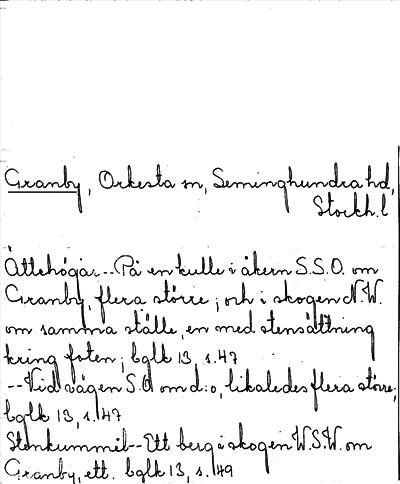 Granby, Orkesta sn, Seminghundra hd,
Stockh.l
Ättehögar.--På en kulle i åkern S.S.O. om
Granby, flera större; och i skogen N.W.
om samma ställe, en med stensättning
kring foten; bglk 13, s.47
--Vid vägen S.O om d:o, likaledes flera större;
bglk 13, s.147
Stenkummel--Ett berg i skogen W.S.W. om
Granby, ett. bglk 13, s.149